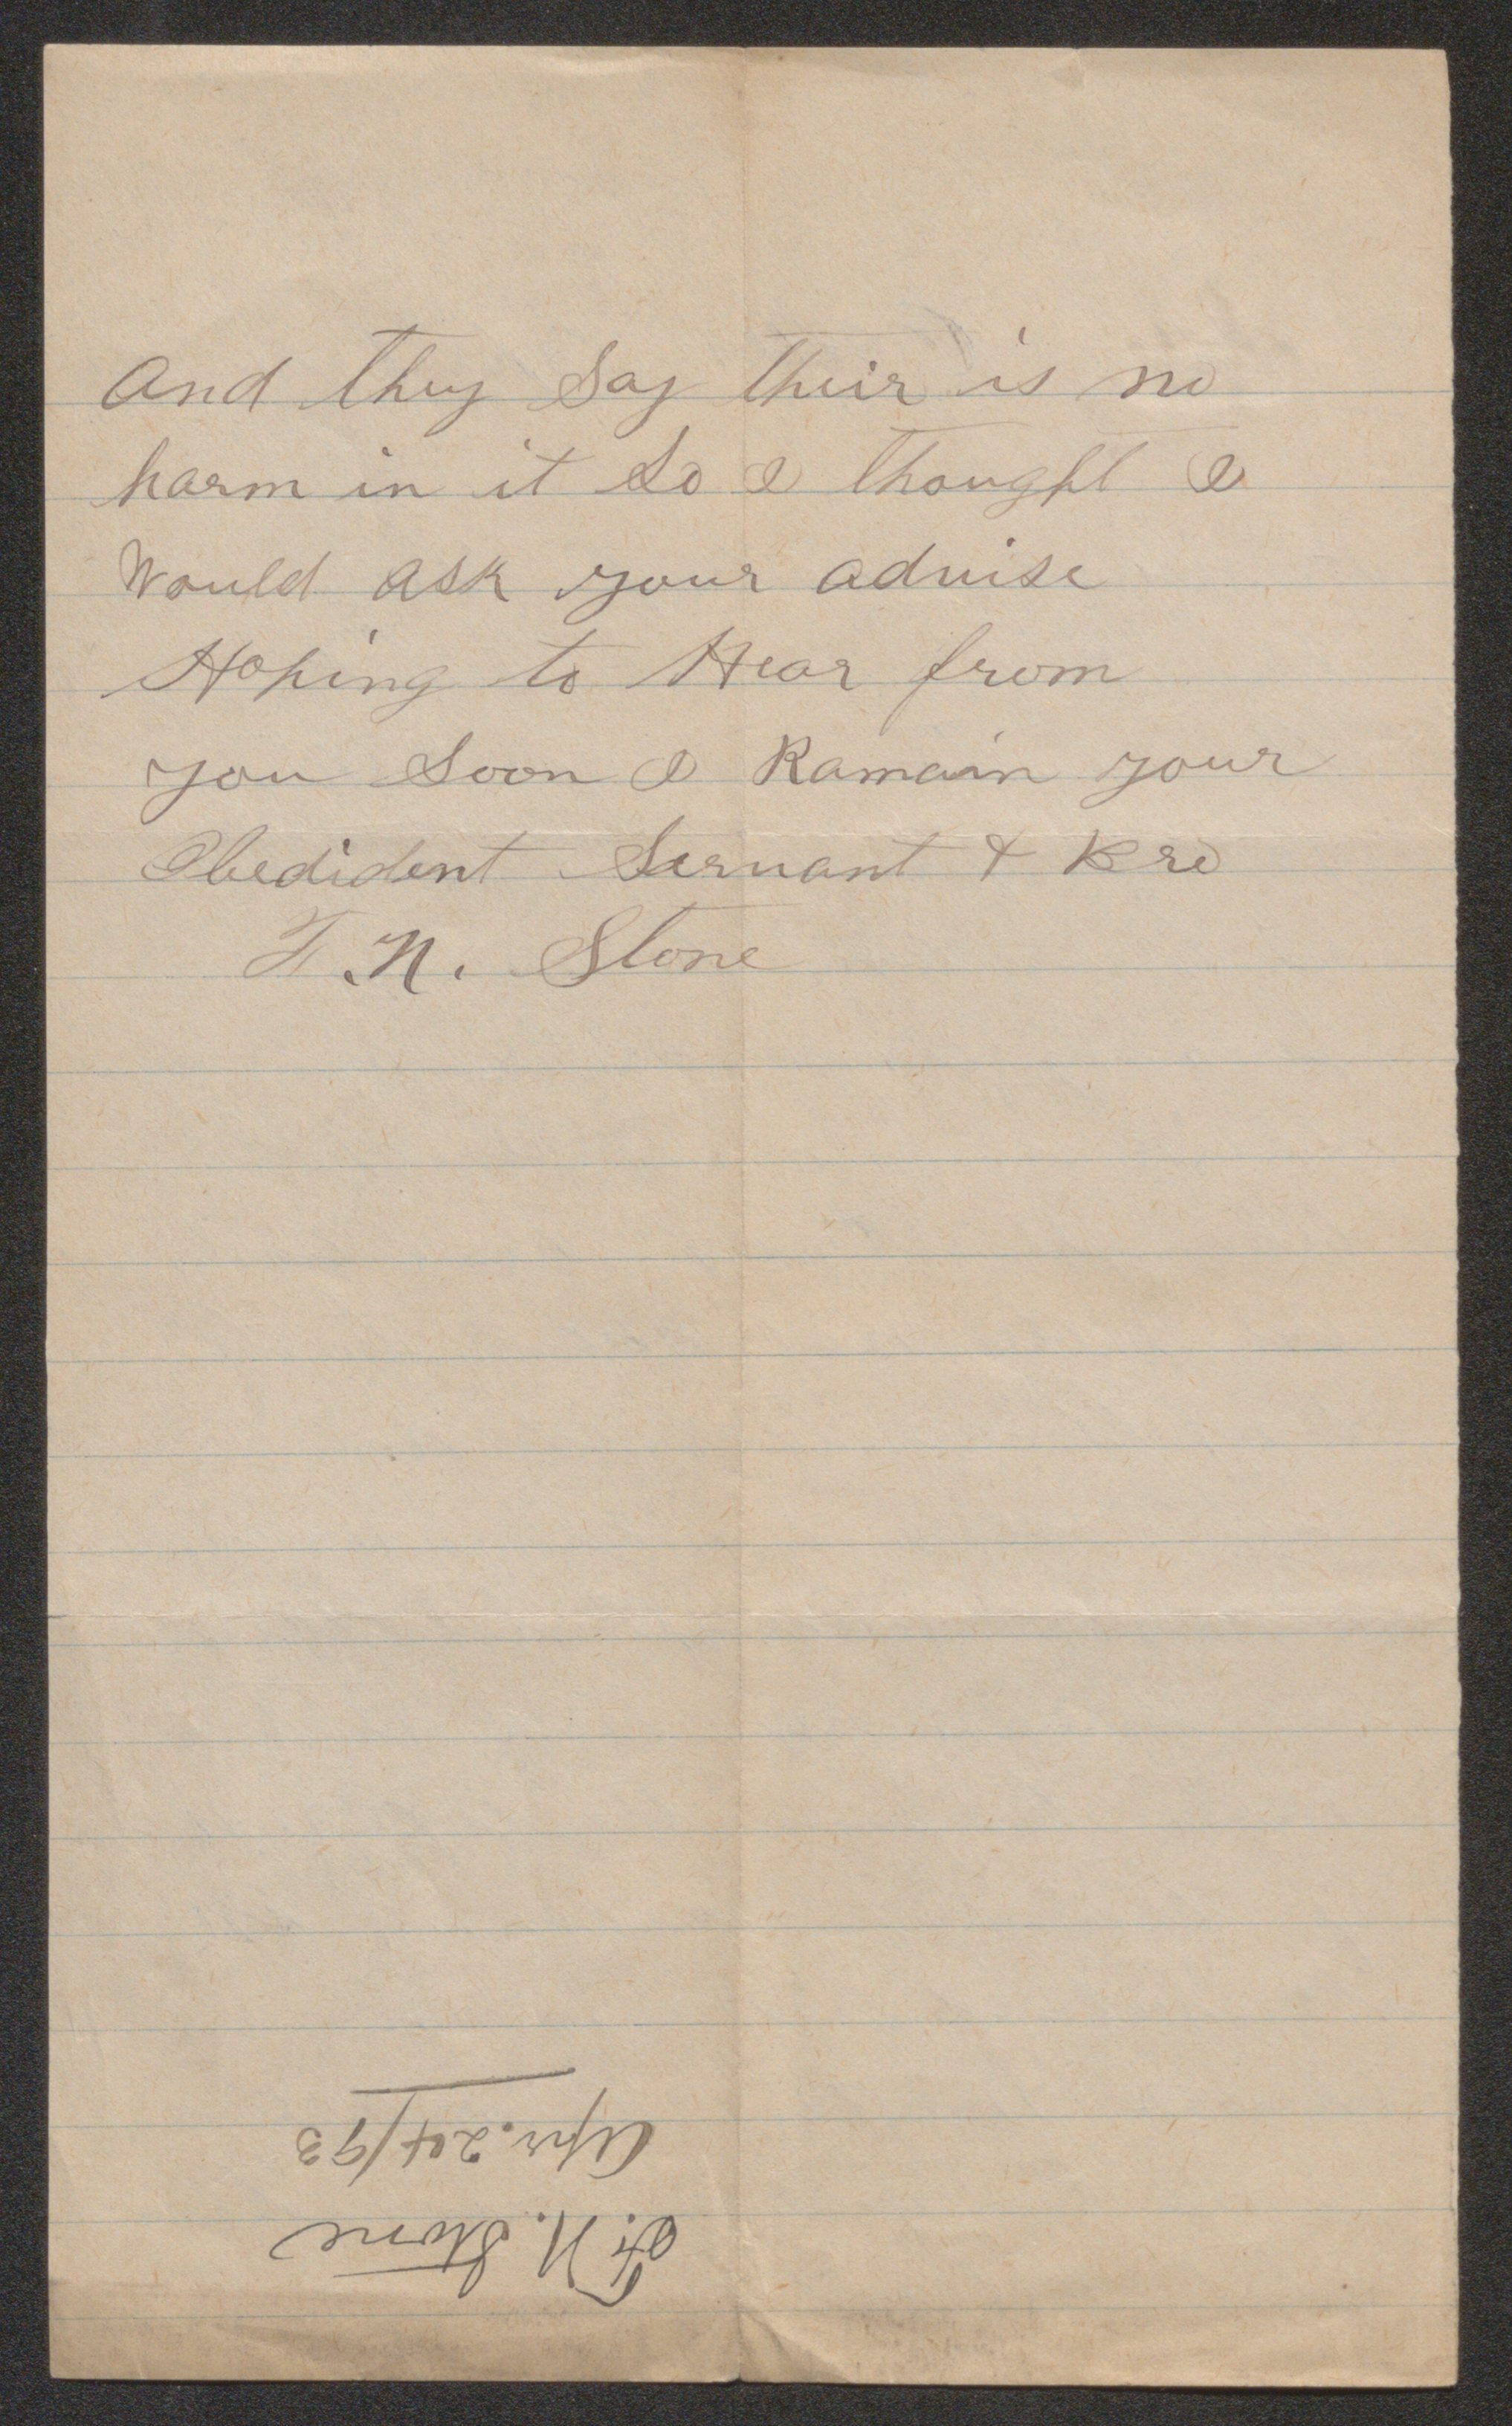 And they Say their is no
harm in it So I thought I
Would ask your advise
Hoping to Hear from
you Soon I Ramain your
Obedident Servant & Bro
T. N. Stone
F. N. Stone
Apr. 24/93